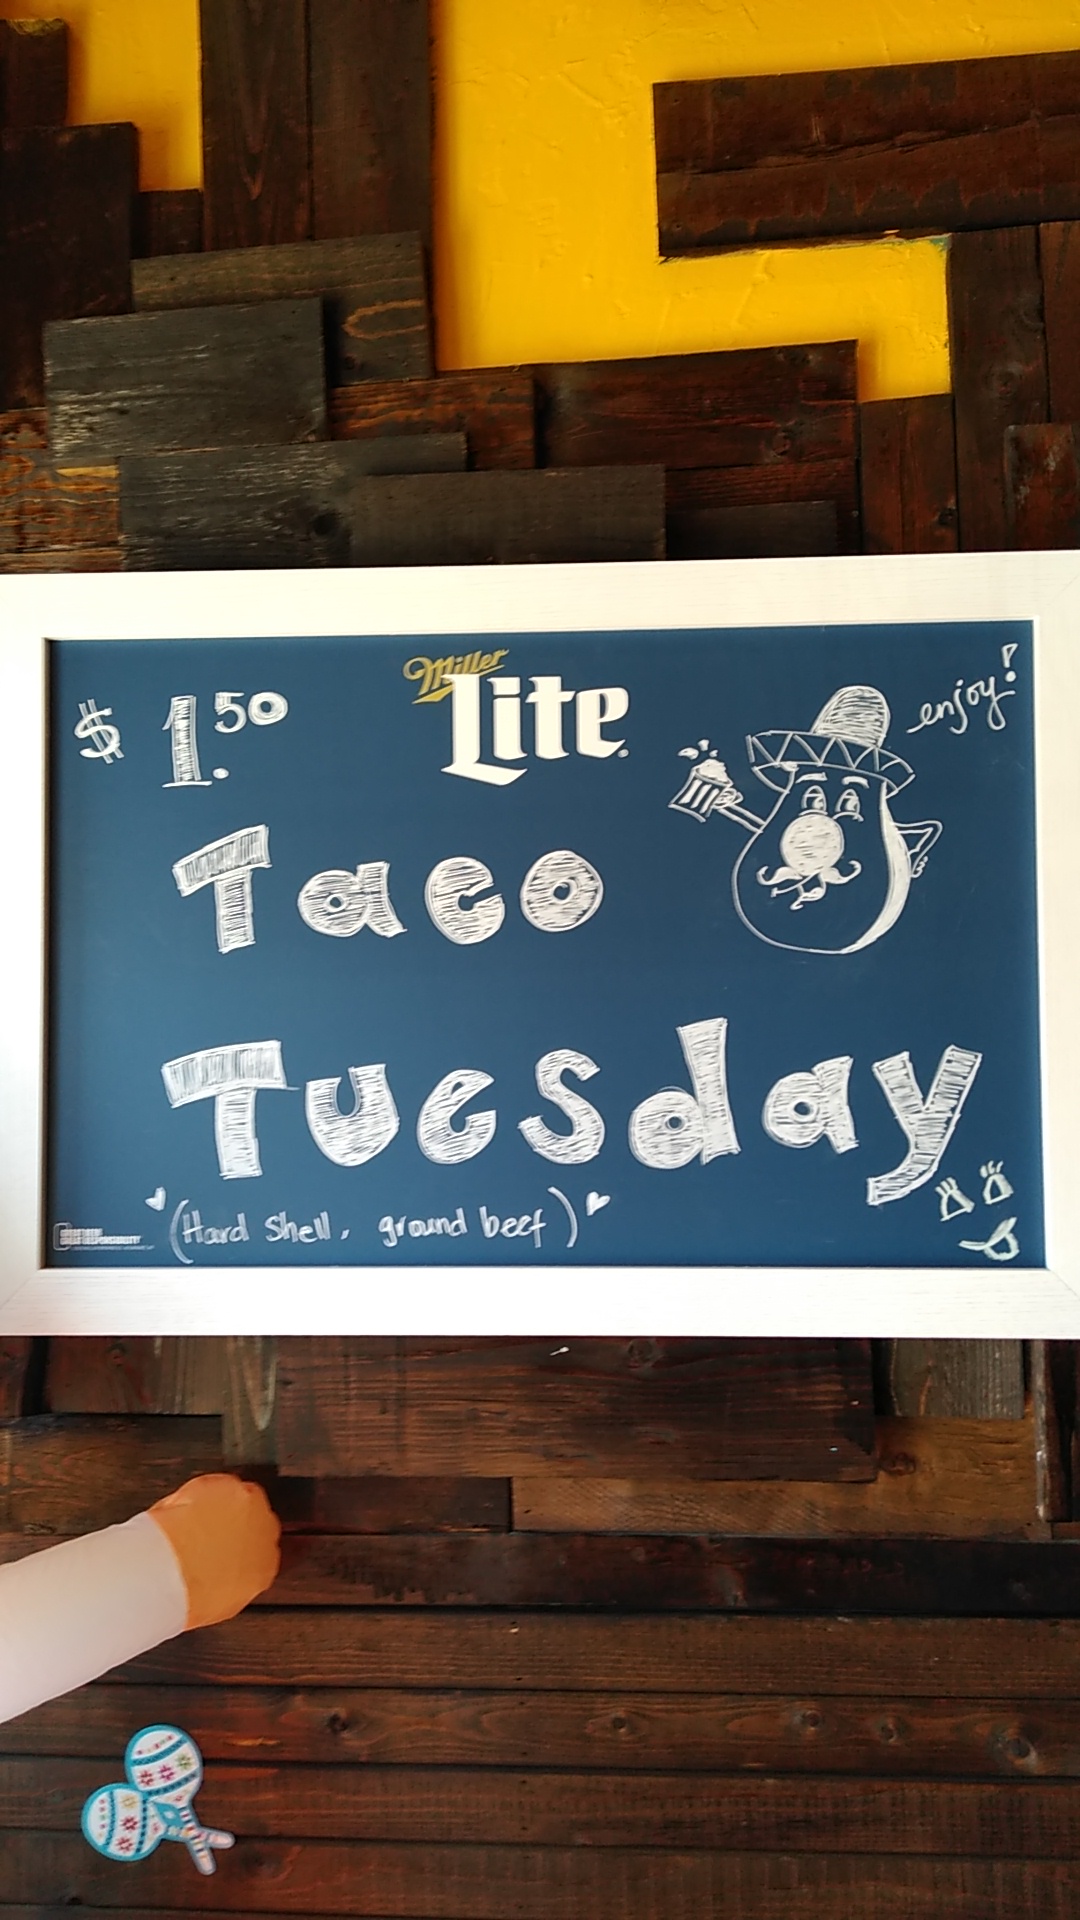 $ 1.50
Miller
Lite
enjoy!
Taco
Tuesday
(Hard shell, ground beef)